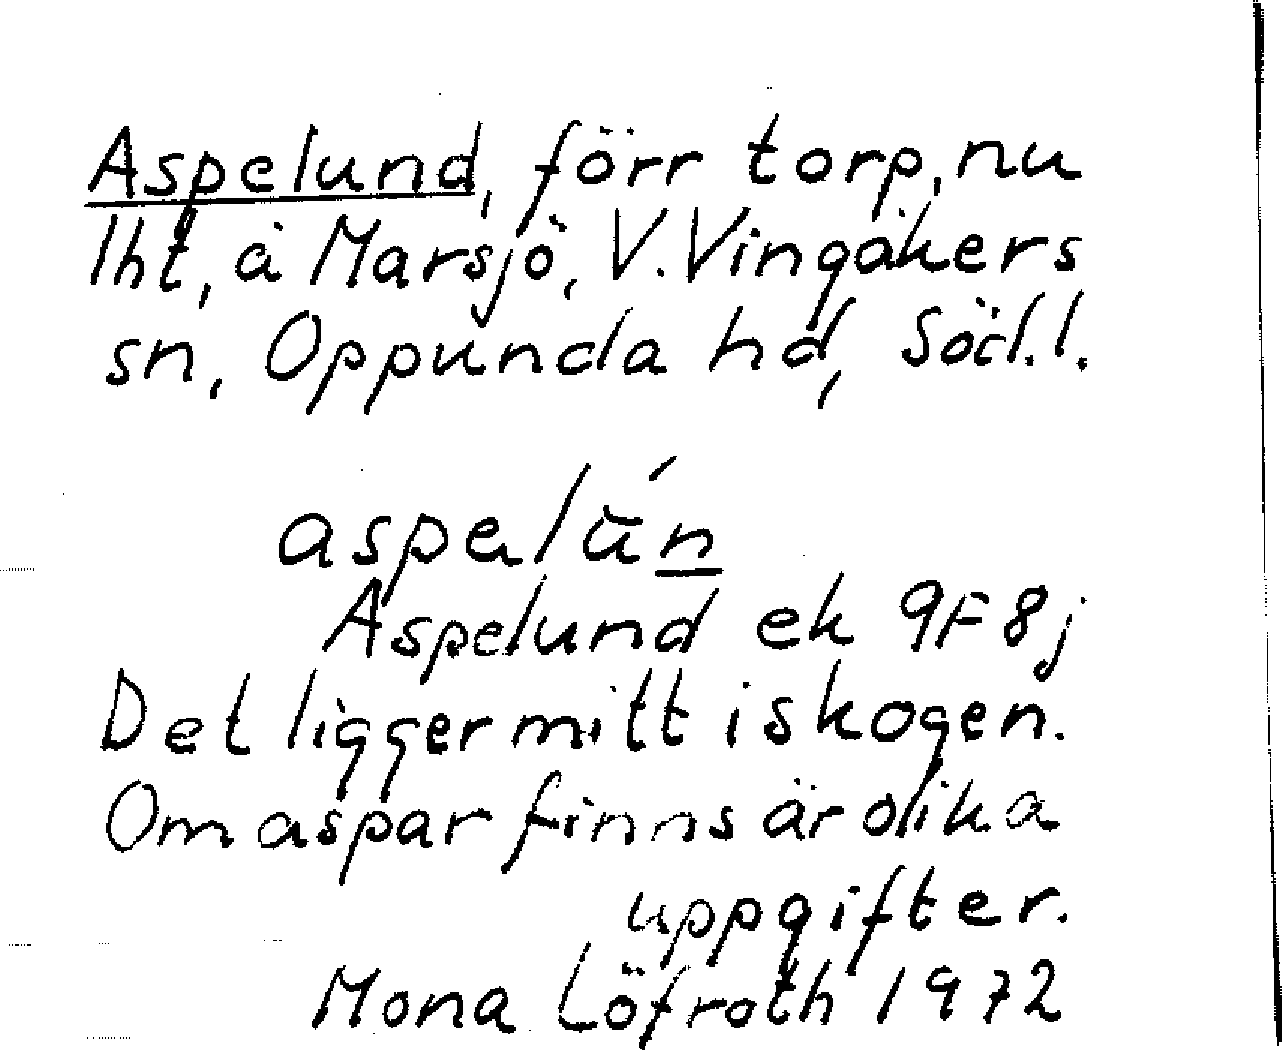 Aspelund, förr torp, nu
lht, å Marsjö, V. Vingåkers
sn, Oppunda hd, Söd.l.
aspəlŭ́n
Aspelund ek 9F8j
Det ligger mitt i skogen.
Om aspar finns är olika
uppgifter.
Mona Löfroth 1972